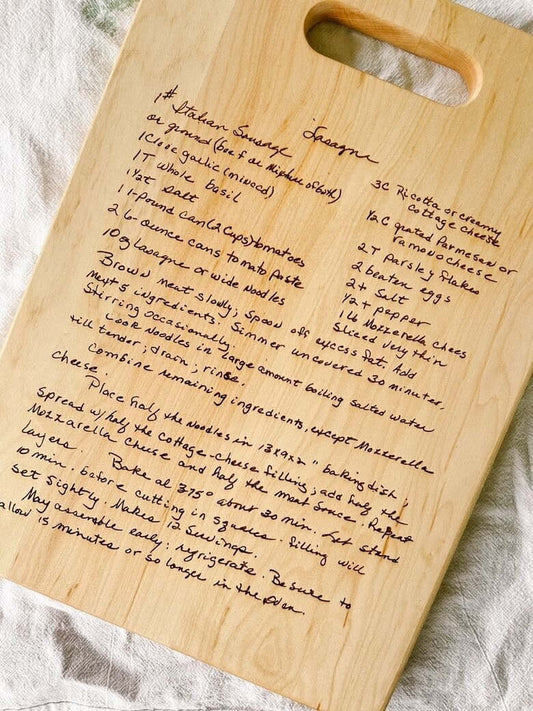 Lasagne
1# Italian Sausage
or ground (beef or Mixture of both)
1 Clove garlic (minced)
1 T whole basil
1 1/2 t salt
1 1-pound can (2 cups) tomatoes
2 6-ounce cans tomato paste
10 oz lasagne or wide Noodles
3C Ricotta or creamy
cottage cheese
1/2 C grated Parmesan or
ramono cheese
2 T Parsley flakes
2 beaten eggs
2 t salt
1/2 t pepper
1 lb Mozzerella chees
sliced very thin
Brown meat slowly; Spoon off excess fat. Add
next 5 ingredients. Simmer uncovered 30 minutes,
Stirring occasionally.
Cook Noodles in large amount boiling salted water
till tender; drain; rinse.
Combine remaining ingredients, except Mozzerella
cheese.
Place half the Noodles in 13x9x2" baking dish;
spread w/ half the cottage-cheese filling; add half the
Mozzarella cheese and half the meat sauce. Repeat
layers. Bake at 375° about 30 min. Let stand
10 min. before cutting in squares - filling will
set slightly. Makes 12 servings.
May assemble early; refrigerate. Be sure to
allow 15 minutes or so longer in the oven.